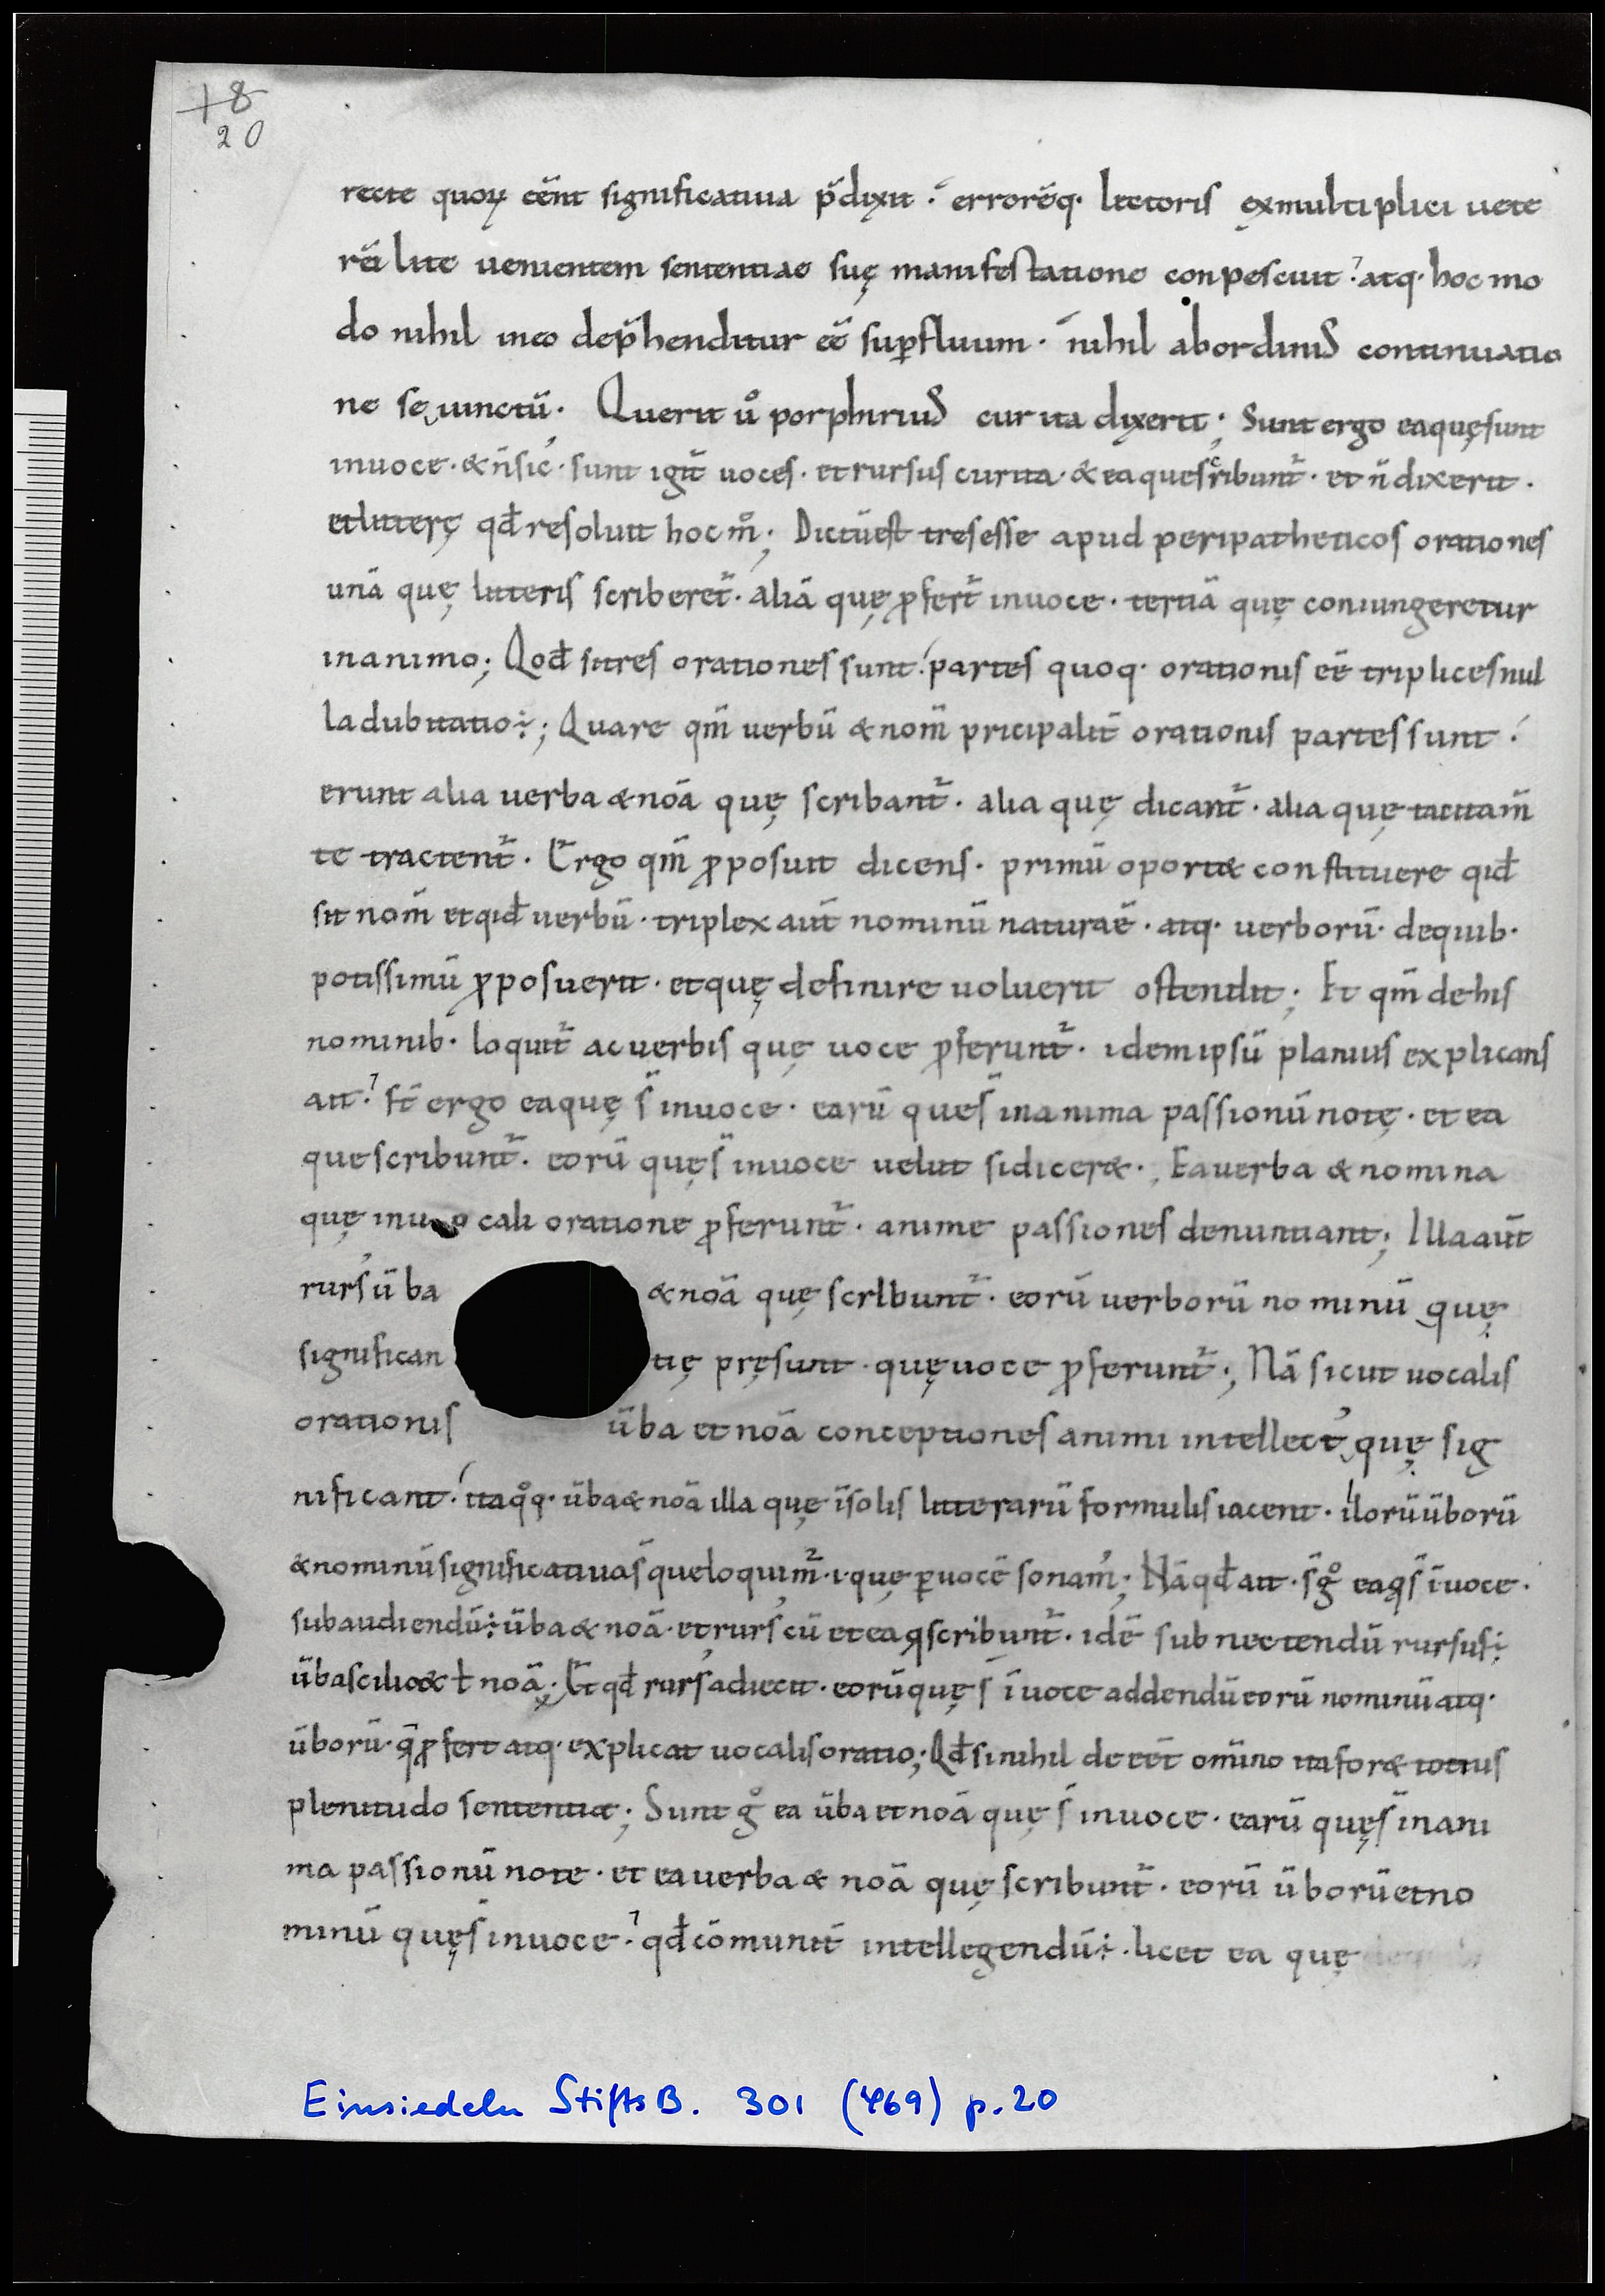 18
20
recte quoꝝ eēnt significatiua p̄dixit · errorēq· lectoris ex multiplici uete
rū lite uenientem sententiae suę manifestatione conpescuit · atq· hoc mo
do nihil in eo dep̄henditur eē sup̄fluum · nihil ab ordinis continuatio
ne seiunctū · Querit ů porphirius cur ita dixerit ; Sunt ergo ea quę sunt
in uoce · & n̄ sic · sunt igit̄ uoces · et rursus cur ita · & ea que scribunt̄ · et n̄ dixerit ·
et litterę qđ resoluit hoc m̊ ; Dictū est tres esse apud peripatheticos orationes
unā quę litteris scriberet̄ · aliā quę ꝓfert̄ in uoce · tertiā quę coniungeretur
in animo ; Qođ si tres orationes sunt · partes quoq· orationis eē triplices nul
la dubitatio ÷ ; Quare qm̄ uerbū & nom̄ pricipalit̄ orationis partes sunt ·
erunt alia uerba & noā quę scribant̄ · alia quę dicant̄ · alia quę tacita m̄
te tractent̄ · Ergo qm̄ ꝓposuit dicens · primū oport& constituere qid̄
sit nom̄ et qid̄ uerbū · triplex aūt nominū natura ē · atq· uerborū · de quib·
potissimū ꝓposuerit · et quę definire uoluerit ostendit ; Et qm̄ de his
nominib· loquit̄ ac uerbis quę uoce ꝓferunt̄ · idem ipsū planius explicans
ait · st̄ ergo ea quę s̄ in uoce · earū que s̄ in anima passionū notę · et ea
que scribunt̄ · eorū quę s̄ in uoce uelut si dicer& · ; Ea uerba & nomina
quę in uocali oratione ꝓferunt̄ · anime passiones denuntiant ; Illa aūt
rurs' ūba & noā quę scribunt̄ · eorū uerborū nominū quę
significan tię pręsunt · quę uoce ꝓferunt̄ · ; Nā sicut uocalis
orationis ūba et noā conceptiones animi intellect' quę sig
nificant · ita q̊q· ūba & noā illa quę ī solis litterarū formulis iacent · illorū ūborū
& nominū significatiua s̄ que loquim̄ · i · quę p̱ uocē sonam' ; Nā qđ ait · s̄ g̊ ea q̨ s̄ ī uoce ·
subaudiendū ÷ ūba & noā · et rurs' cū et ea q̨ scribunt̄ · idē subnectendū rursus ÷
ūba scilic& ł noā ; Et qđ rurs' adiecit · eorū quę s̄ ī uoce addendū eorū nominū atq·
ūborū · q̨̄ ꝓfert atq· explicat uocalis oratio ; Qđ si nihil de eēt omīno ita for& totius
plenitudo sententiæ ; Sunt g̊ ea ūba et noā quę s̄ in uoce · earū quę s̄ in ani
ma passionū note · et ea uerba & noā quę scribunt̄ · eorū ūborū et no
minū quę s̄ in uoce · qđ cōmunit̄ intellegendū ÷ · licet ea quę
Einsiedeln StiftsB. 301 (469) p. 20